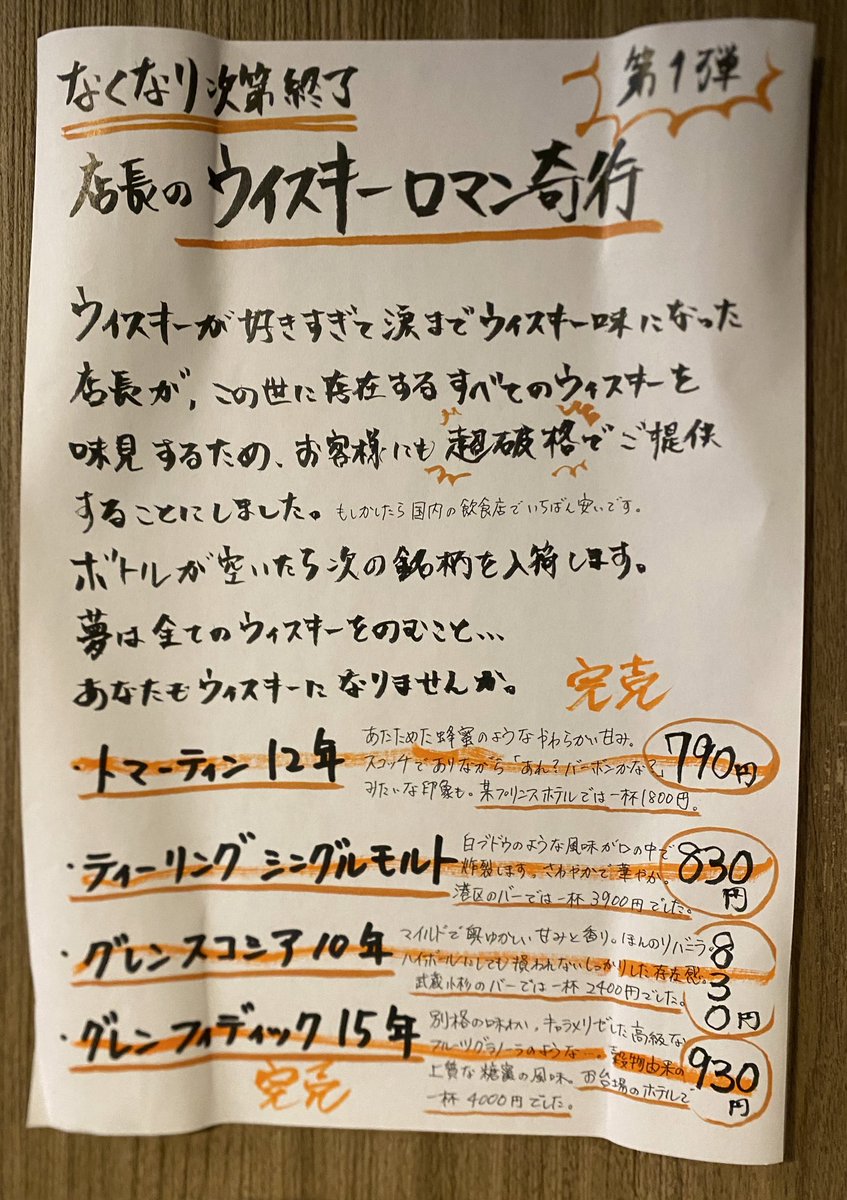 なくなり次第終了
第1弾
店長のウイスキーロマン奇行
ウィスキーが好きすぎて涙までウィスキー味になった
店長が、この世に存在するすべてのウィスキーを
味見するため、お客様にも超破格でご提供
することにしました。もしかしたら国内の飲食店でいちばん安いです。
ボトルが空いたら次の銘柄を入荷します。
夢は全てのウィスキーをのむこと…
あなたもウィスキーになりませんか。
完売
・トマーティン12年
あたためた蜂蜜のようなやわらかい甘み。
スコッチでありながら「あれ?バーボンかな?」
みたいな印象も。某プリンスホテルでは一杯1800円。
790円
・ティーリングシングルモルト
白ブドウのような風味が口の中で
炸裂します。さわやかで華やか。
港区のバーでは一杯3900円でした。
830円
・グレンスコシア10年
マイルドで奥ゆかしい甘みと香り。ほんのりバニラ。
ハイボールにしても損われないしっかりした存在感。
武蔵小杉のバーでは一杯2400円でした。
830円
・グレンフィディック15年
別格の味わい。キャラメリゼした高級な
フルーツグラノーラのような…。穀物由来の
上質な糖蜜の風味。お台場のホテルで
一杯4000円でした。
930円
完売